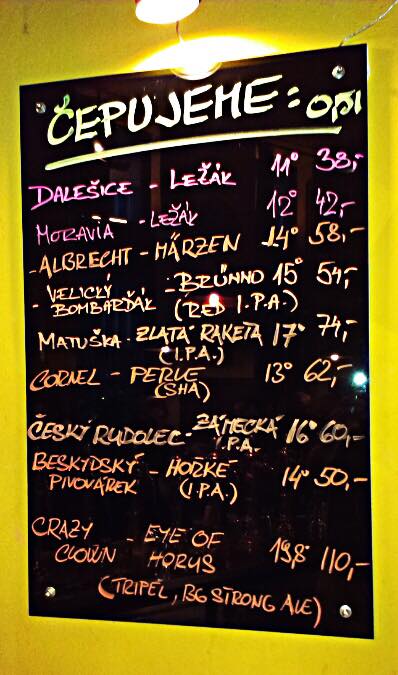 ČEPUJEME: 0,5l
DALEŠICE - LEŽÁK 11° 38,-
MORAVIA - LEŽÁK 12° 42,-
- ALBRECHT - MÄRZEN 14° 58,-
- VELICKÝ BOMBARĎÁK - BRÜNNO (RED I.P.A.) 15° 54,-
MATUŠKA - ZLATÁ RAKETA 17° 74,-
(I.P.A.)
CORNEL - PERLE 13° 62,-
(SHA)
ČESKÝ RUDOLEC - ZÁMECKÁ 16° 60,-
I.P.A.
BESKYDSKÝ - HOŘKÉ 14° 50,-
PIVOVÁREK (I.P.A.)
CRAZY - EYE OF 19,8° 110,-
CLOWN HORUS
(TRIPEL, BG STRONG ALE)